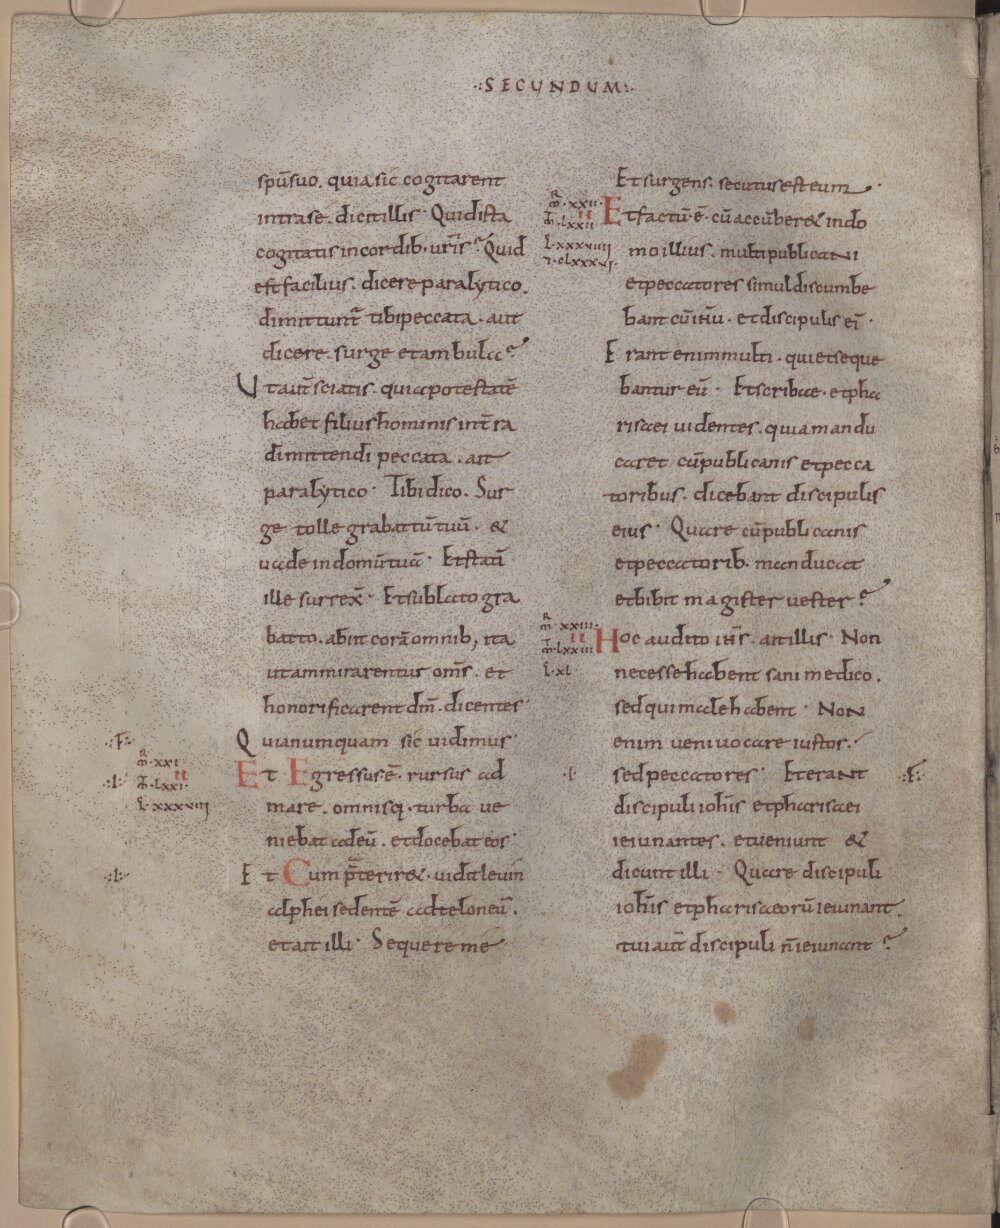 ·:SECUNDUM:·
spū suo. quia sic cogitarent
intra se. dicit illis· Quid ista
cogitatis in cordib· urīs? Quid
est facilius. dicere paralytico.
dimittunt᷒ tibi peccata. aut
dicere. surge et ambula?
Ut aut̄ sciatis. quia potestatē
habet filius hominis in t̄ra
dimittendi peccata. ait
paralytico· Tibi dico. Sur
ge tolle grabattū tuū. &
uade in domū tuā· Et statī
ille surrex̄· Et sublato gra
batto. abiit corā omnib; ita
ut ammirarentur om̄s. et
honorificarent dm̄. dicentes·
Quia numquam sic uidimus·
·:F:·
·:l:·
m̄·xxi
m̄·lxxi· II
l·xxxviiij
Et Egressus ē. rursus ad
mare. omnisq· turba ue
niebat ad eū. et docebat eos·
·:l:·
Et Cum p̄terir&· uidit leuin
alphei sedentē ad teloneū.
et ait illi· Sequere me
Et surgens. secutus est eum·
m̄·xxii·
m̄·lxxii II
l·xxxviiii
i·clxxxvi·
Et factū·ē· cū accūber& in do
mo illius. multi publicani
et peccatores simul discumbe
bant cū ihu̅· et discipulis ei᷒·
Erant enim multi· qui et seque
bantur eū· Et scribae· et pha
risaei uidentes. quia mandu
caret cū publicanis et pecca
toribus. dicebant discipulis
eius· Quare cū publicanis
et peccatorib· manducat
et bibit magister uester?
m̄ xxiii·
m̄·lxxiii II
l·xl
Hoc audito ih̄s· ait illis· Non
necesse habent sani medico.
sed qui male habent· Non
enim ueni uocare iustos.
·l·
sed peccatores· Et erant
·:F:·
discipuli ioh̄is et pharisaei
ieiunantes. et ueniunt &
dicunt illi· Quare discipuli
ioh̄is et pharisaeorū ieiunant.
tui aut̄ discipuli n̄ ieiunant?